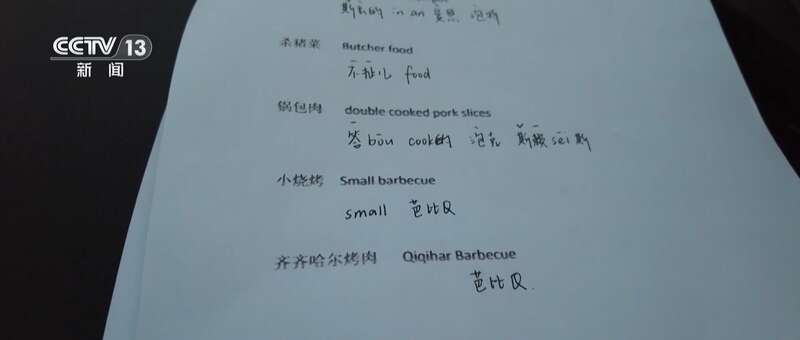 CCTV 13
新闻
斯 的 in an 曼思 泡 
杀猪菜 Butcher food
不扯儿 food
锅包肉 double cooked pork slices
答bōu cook的 泡克 斯 sēi斯
小烧烤 Small barbecue
small 芭比Q
齐齐哈尔烤肉 Qiqihar Barbecue
芭比Q.